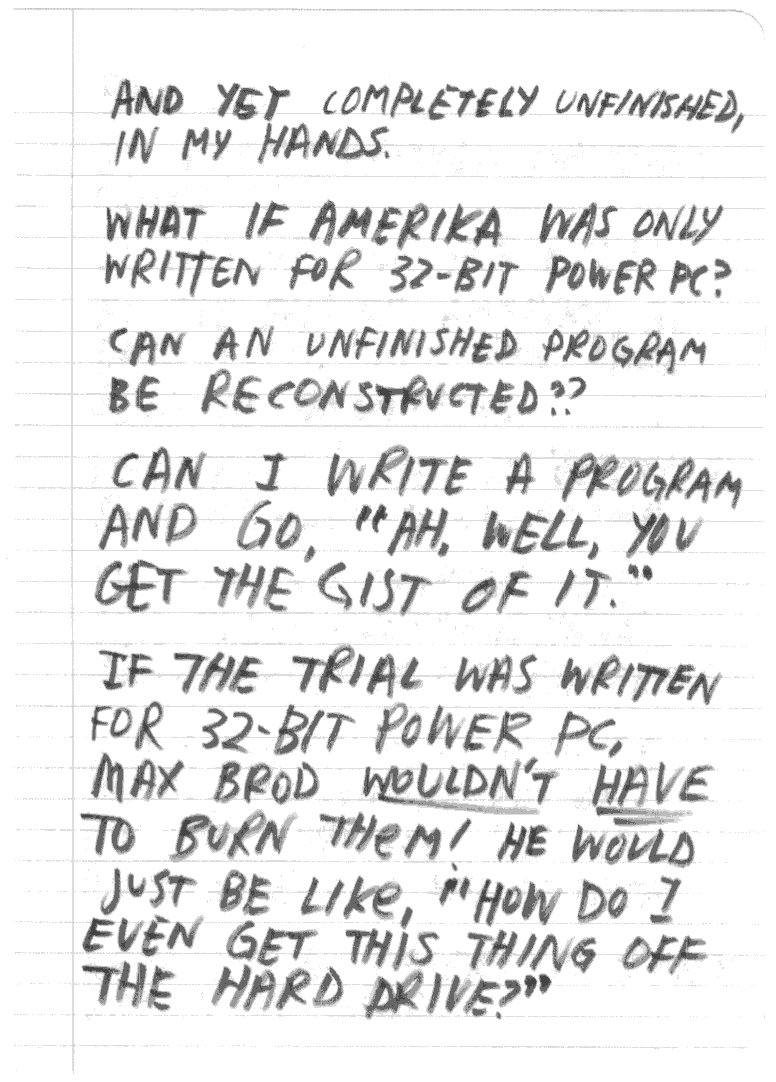 AND YET COMPLETELY UNFINISHED,
IN MY HANDS.
WHAT IF AMERIKA WAS ONLY
WRITTEN FOR 32-BIT POWER PC?
CAN AN UNFINISHED PROGRAM
BE RECONSTRUCTED??
CAN I WRITE A PROGRAM
AND GO, "AH, WELL, YOU
GET THE GIST OF IT."
IF THE TRIAL WAS WRITTEN
FOR 32-BIT POWER PC,
MAX BROD WOULDN'T HAVE
TO BURN THeM! HE WOULD
JUST BE LIKe, "HOW DO I
EVEN GET THIS THING OFF
THE HARD DRIVE?"